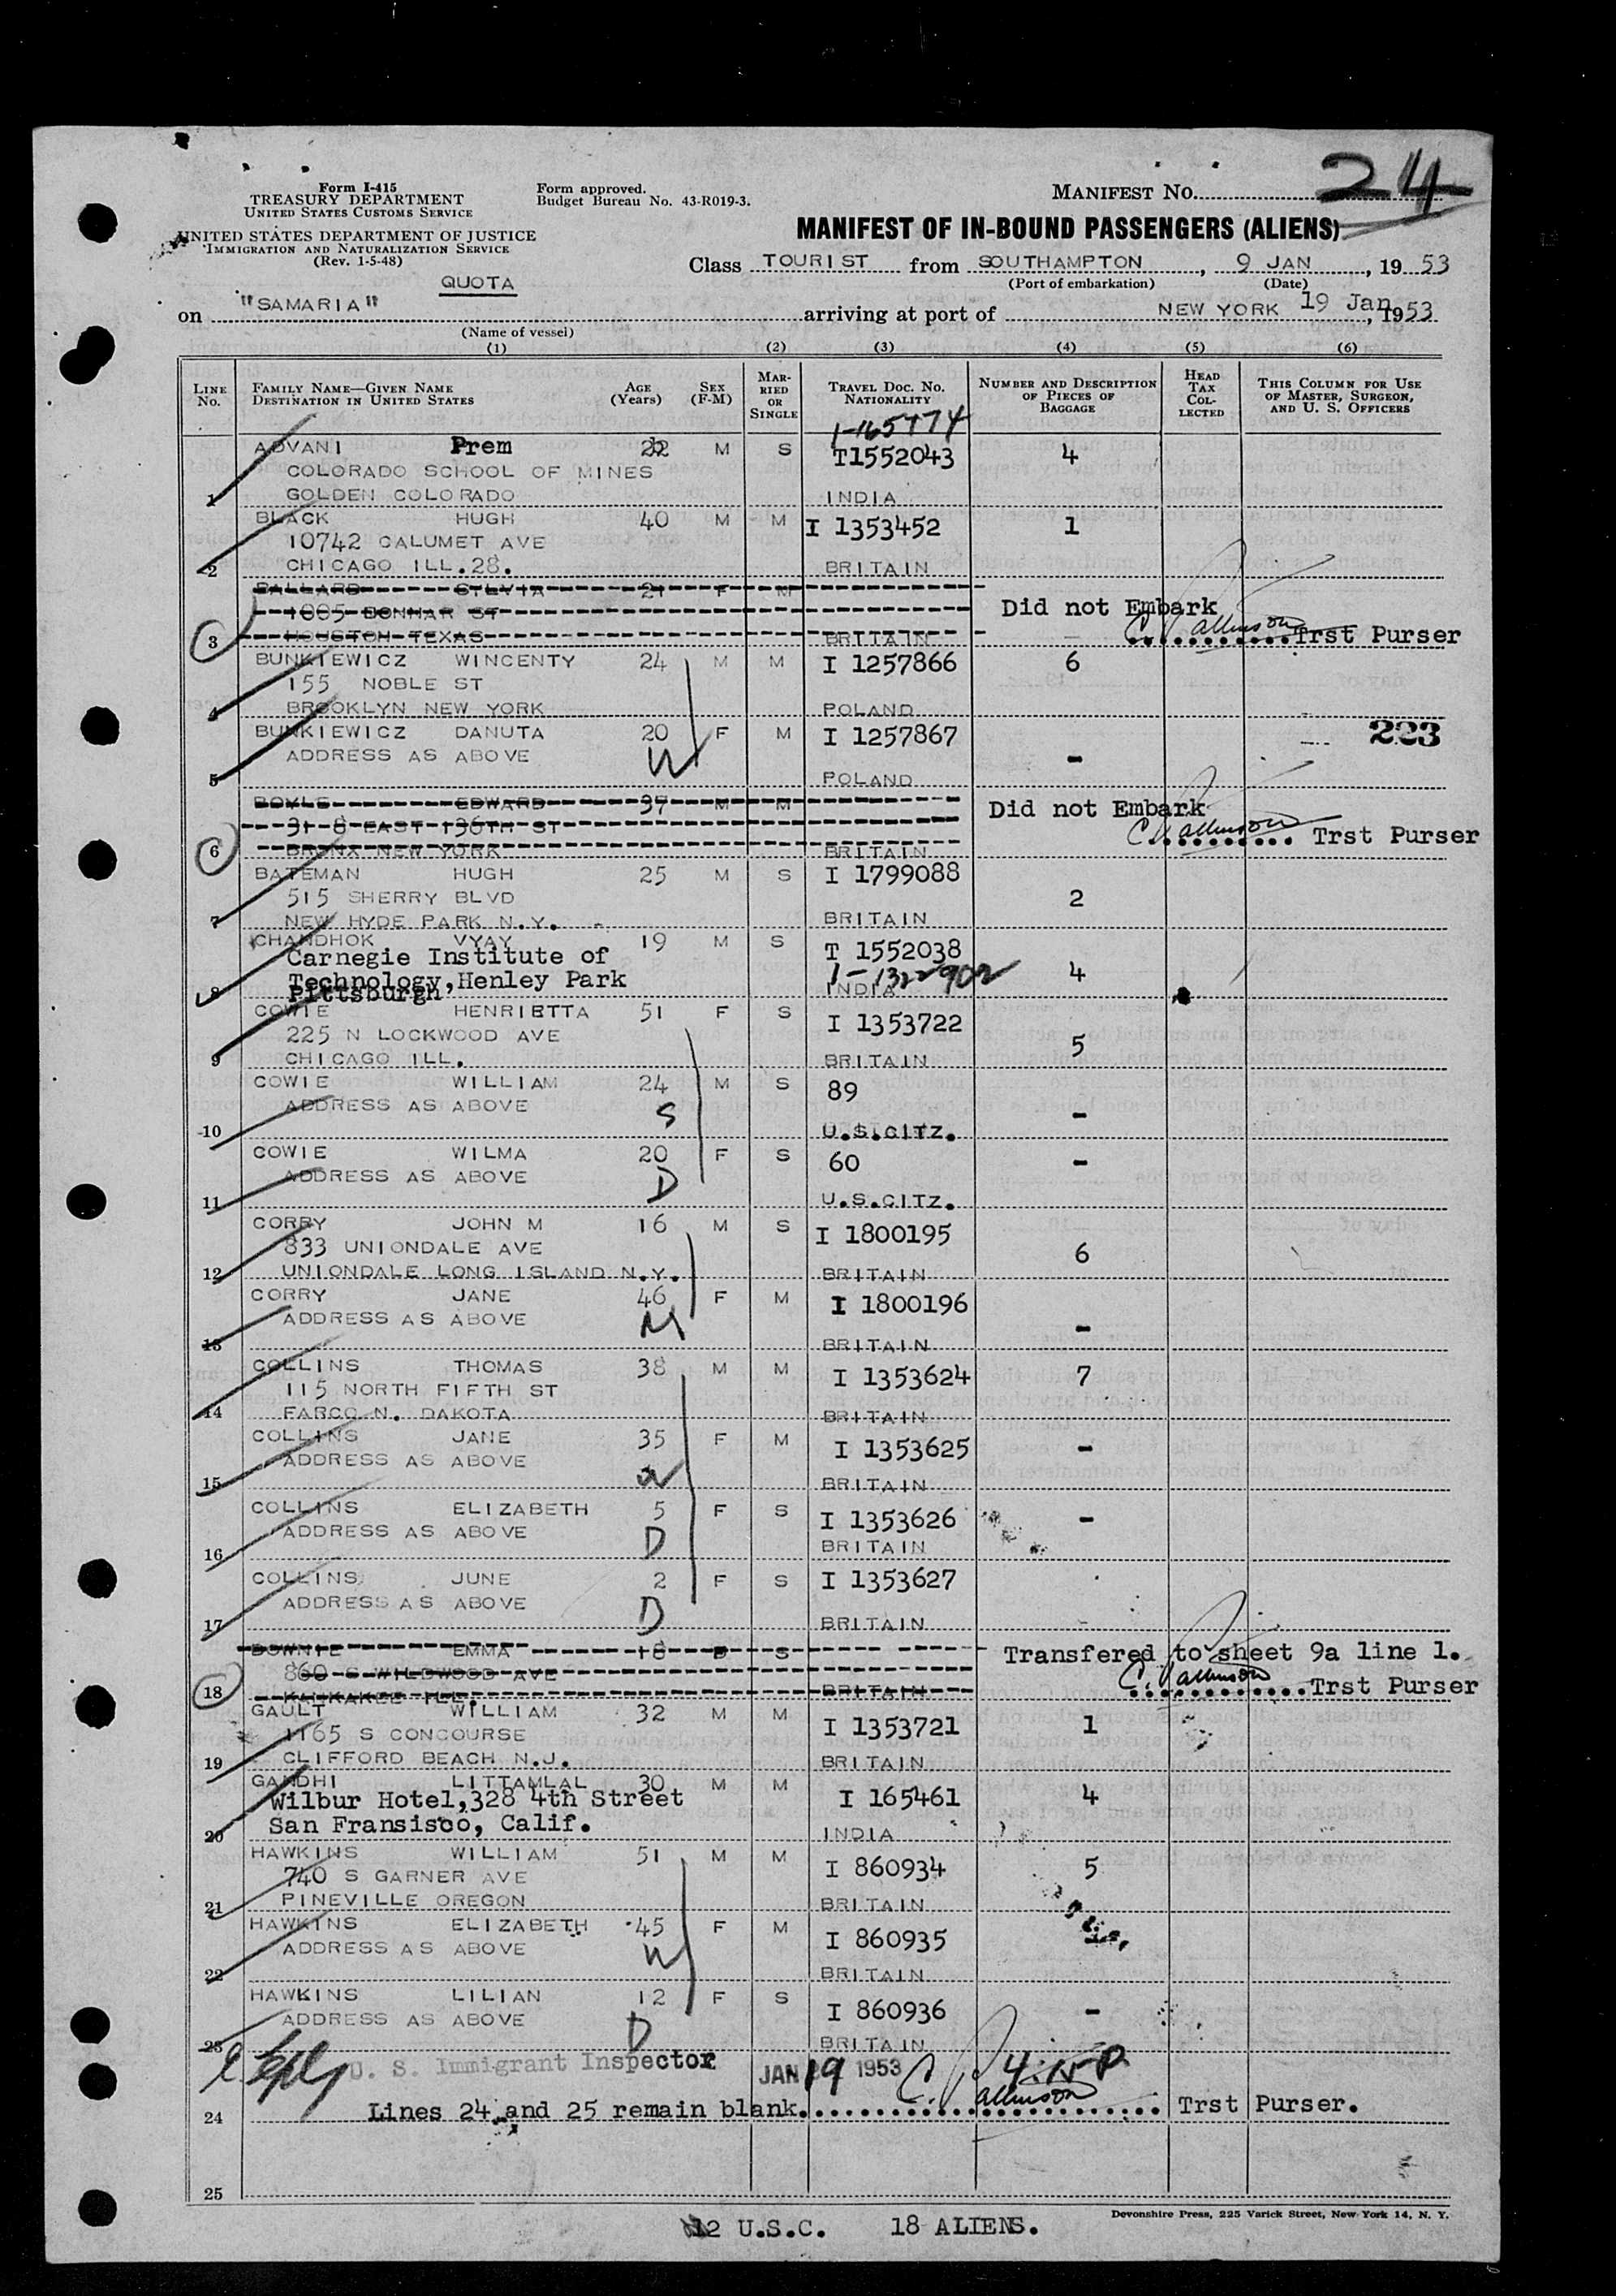 24
Form I-415
TREASURY DEPARTMENT
UNITED STATES CUSTOMS SERVICE
UNITED STATES DEPARTMENT OF JUSTICE
IMMIGRATION AND NATURALIZATION SERVICE
(Rev. 1-5-48)
Form approved.
Budget Bureau No. 43-R019-3.
MANIFEST No.
MANIFEST OF IN-BOUND PASSENGERS (ALIENS)
Class TOURIST from SOUTHAMPTON, 9 JAN, 1953
(Port of embarkation) (Date)
QUOTA
on "SAMARIA" arriving at port of NEW YORK 19 Jan, 1953
(Name of vessel)
(1) (2) (3) (4) (5) (6)
LINE No. FAMILY NAME—GIVEN NAME DESTINATION IN UNITED STATES AGE (Years) SEX (F-M) MARRIED OR SINGLE TRAVEL DOC. No. NATIONALITY NUMBER AND DESCRIPTION OF PIECES OF BAGGAGE HEAD TAX COLLECTED THIS COLUMN FOR USE OF MASTER, SURGEON, AND U. S. OFFICERS
ADVANI Prem 22 M S T1552043 4
COLORADO SCHOOL OF MINES
1 GOLDEN COLORADO INDIA
BLACK HUGH 40 M M I 1353452 1
10742 CALUMET AVE
2 CHICAGO ILL.28. BRITAIN
BALLARD SYLVIA 21 F M
1005 BONHAR ST Did not Embark
3 HOUSTON TEXAS BRITAIN Trst Purser
BUNKIEWICZ WINCENTY 24 M M I 1257866 6
155 NOBLE ST
4 BROOKLYN NEW YORK POLAND
BUNKIEWICZ DANUTA 20 F M I 1257867 - 223
ADDRESS AS ABOVE W
5 POLAND
BOYLE EDWARD 37 M M Did not Embark
EAST 136TH ST Trst Purser
6 BRONX NEW YORK BRITAIN
BATEMAN HUGH 25 M S I 1799088
515 SHERRY BLVD 2
7 NEW HYDE PARK N.Y. BRITAIN
CHANDHOK VYAY 19 M S T 1552038
Carnegie Institute of
Technology,Henley Park 1-1322902 4
8 Pittsburgh INDIA
COWIE HENRIETTA 51 F S I 1353722
225 N LOCKWOOD AVE 5
9 CHICAGO ILL. BRITAIN
COWIE WILLIAM 24 M S 89
ADDRESS AS ABOVE S -
10 U.S.CITZ.
COWIE WILMA 20 F S 60 -
ADDRESS AS ABOVE D
11 U.S.CITZ.
CORRY JOHN M 16 M S I 1800195
833 UNIONDALE AVE 6
12 UNIONDALE LONG ISLAND N.Y. BRITAIN
CORRY JANE 46 F M I 1800196
ADDRESS AS ABOVE M -
13 BRITAIN
COLLINS THOMAS 38 M M I 1353624 7
115 NORTH FIFTH ST
14 FARGO N. DAKOTA BRITAIN
COLLINS JANE 35 F M I 1353625 -
ADDRESS AS ABOVE W
15 BRITAIN
COLLINS ELIZABETH 5 F S I 1353626 -
ADDRESS AS ABOVE D
16 BRITAIN
COLLINS JUNE 2 F S I 1353627
ADDRESS AS ABOVE D
17 BRITAIN -
DOWNIE EMMA 18 S Transfered to sheet 9a line 1.
860 S WILDWOOD AVE
18 KANKAKEE ILL. BRITAIN Trst Purser
GAULT WILLIAM 32 M M I 1353721 1
1165 S CONCOURSE
19 CLIFFORD BEACH N.J. BRITAIN
GANDHI LITTAMLAL 30 M M I 165461 4
Wilbur Hotel,328 4th Street
20 San Fransisco, Calif. INDIA
HAWKINS WILLIAM 51 M M I 860934 5
740 S GARNER AVE
21 PINEVILLE OREGON BRITAIN
HAWKINS ELIZABETH 45 F M I 860935
ADDRESS AS ABOVE W
22 BRITAIN
HAWKINS LILIAN 12 F S I 860936 -
ADDRESS AS ABOVE D
23 BRITAIN
U. S. Immigrant Inspector JAN 19 1953
24 Lines 24 and 25 remain blank. Trst Purser.
25
Devonshire Press, 225 Varick Street, New York 14, N. Y.
2 U.S.C. 18 ALIENS.